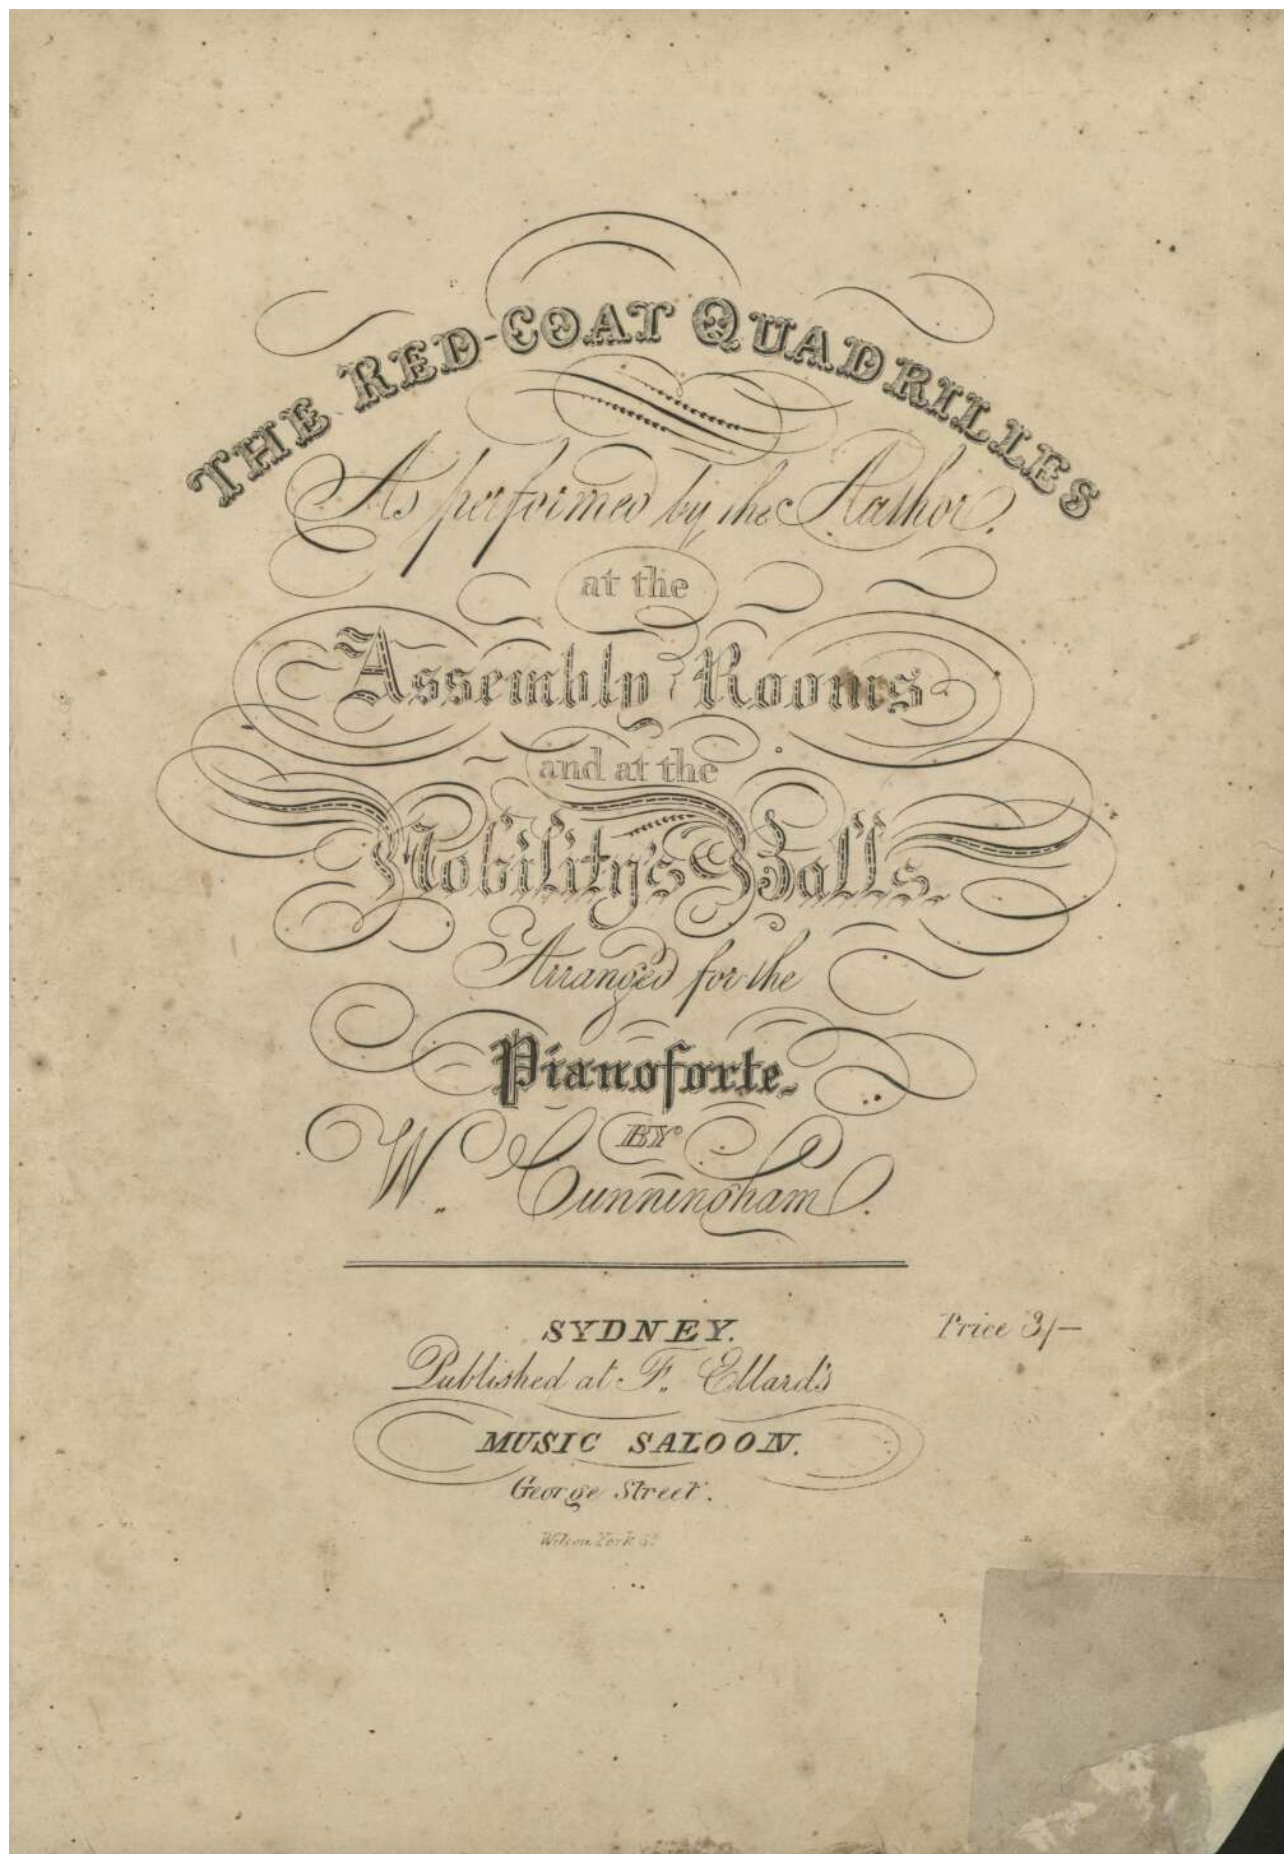 THE RED-COAT QUADRILLES
As performed by the Author.
at the
Assembly Rooms
and at the
Nobility's Balls.
Arranged for the
Pianoforte.
BY
W. Cunningham.
SYDNEY.
Price 3/-
Published at F. Ellard's
MUSIC SALOON.
George Street.
Wilson York St.